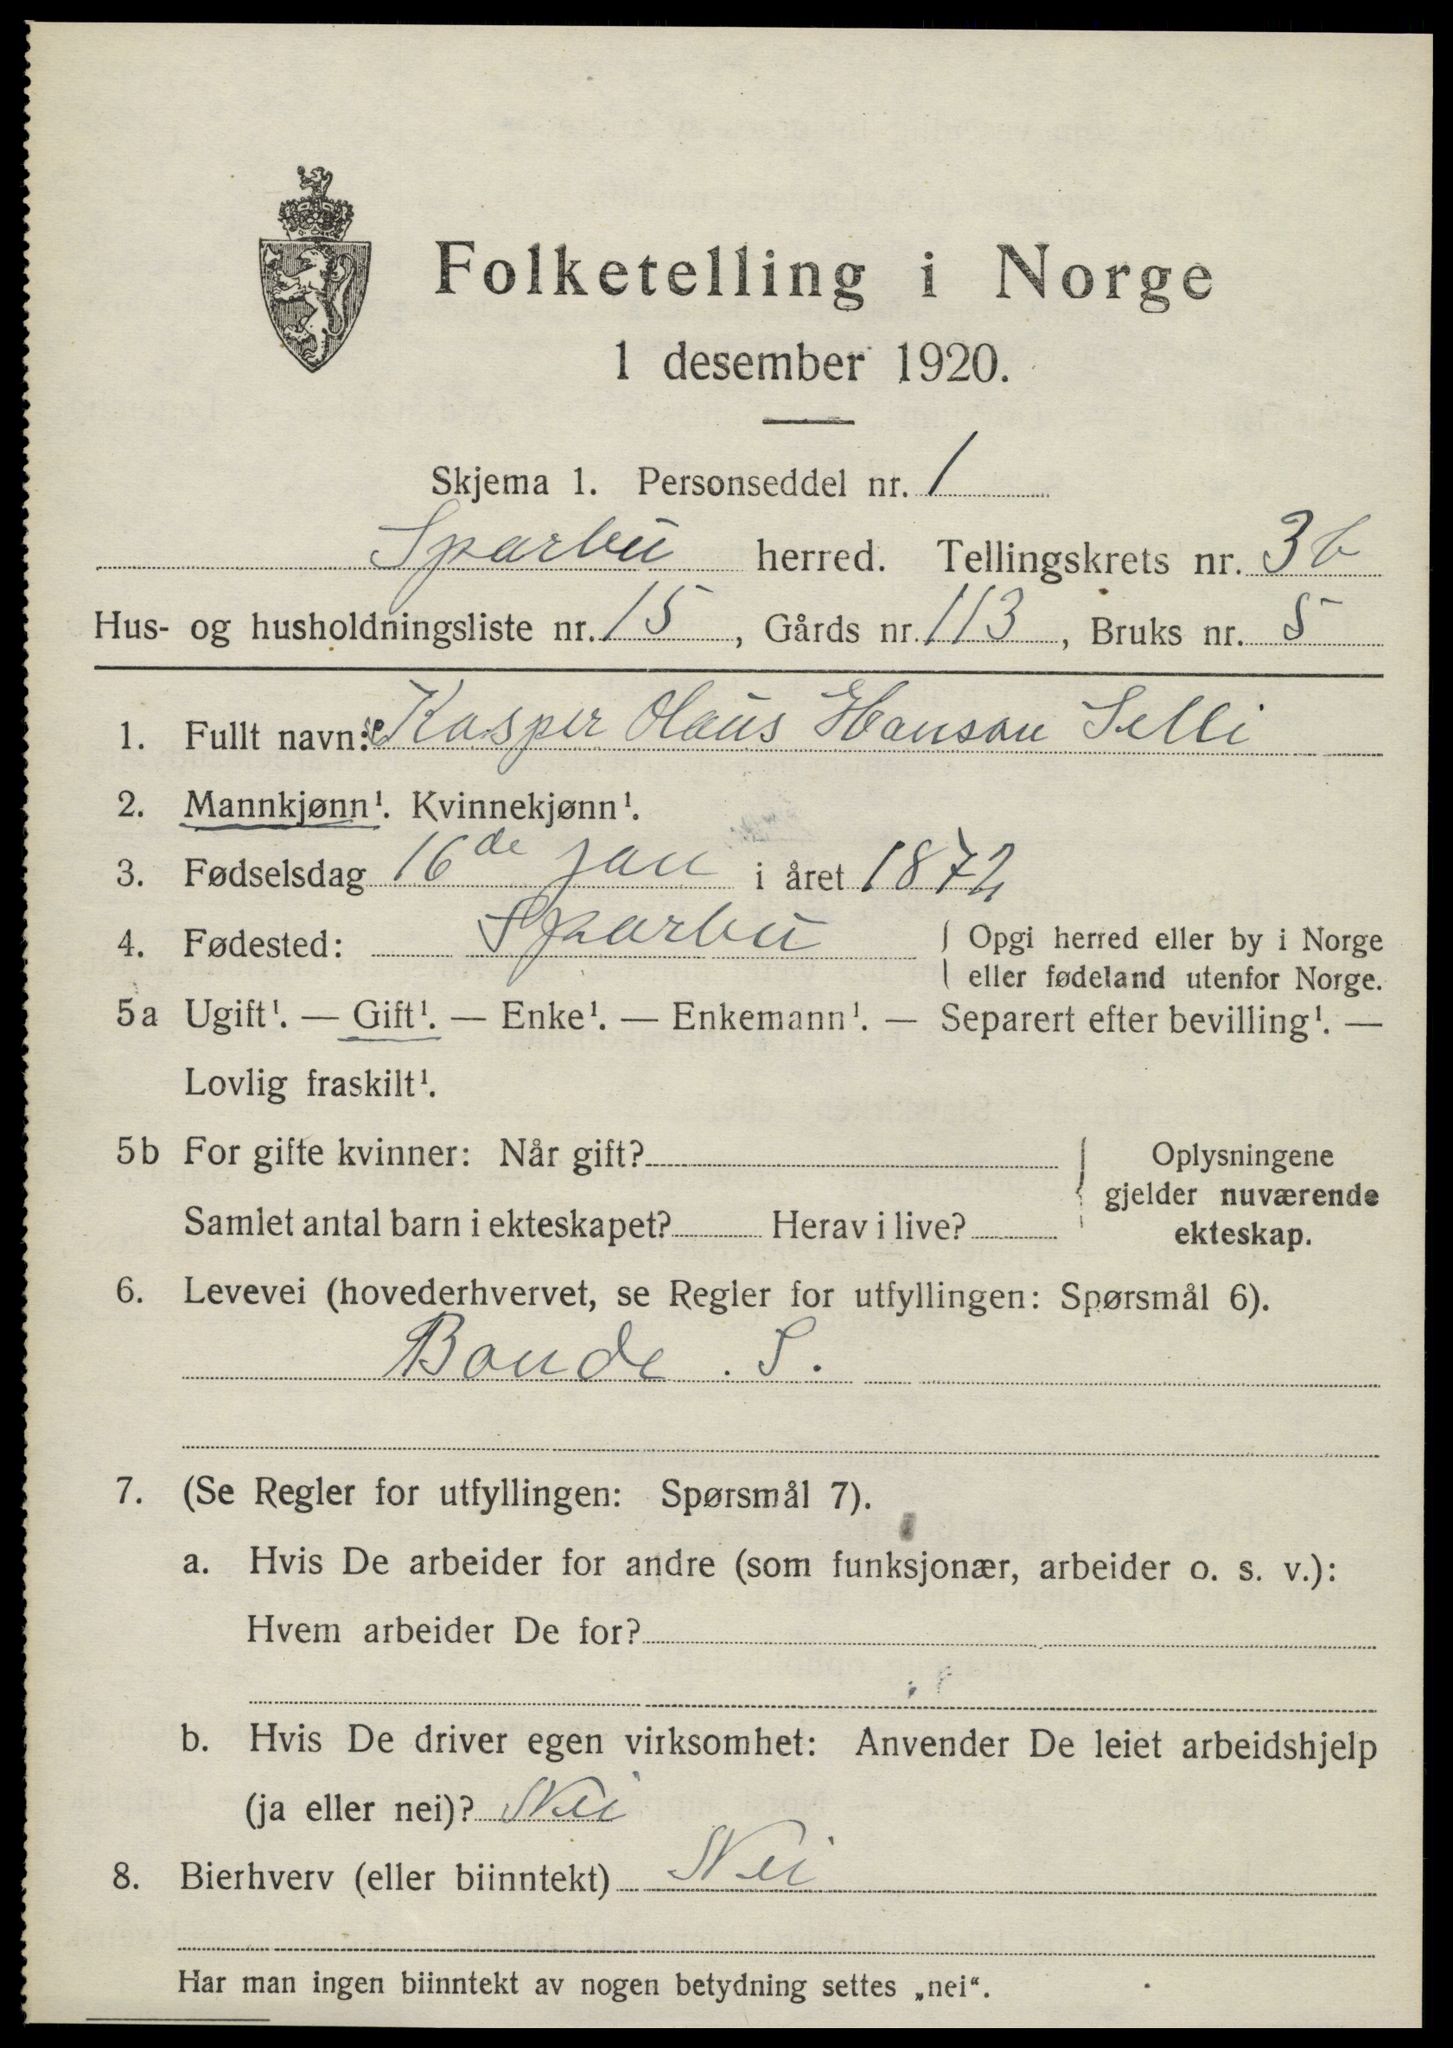 Folketelling i Norge
1 desember 1920.
Skjema 1. Personseddel nr. 1
Sparbu herred. Tellingskrets nr. 3b
Hus- og husholdningsliste nr. 15, Gårds nr. 113, Bruks nr. 5
1. Fullt navn: Kasper Olaus Hanson Selli
2. Mannkjønn¹. Kvinnekjønn¹.
3. Fødselsdag 16de jan i året 1872
4. Fødested: Sparbu { Opgi herred eller by i Norge
eller fødeland utenfor Norge.
5a Ugift¹. — Gift¹. — Enke¹. — Enkemann¹. — Separert efter bevilling¹. —
Lovlig fraskilt¹.
5b For gifte kvinner: Når gift?
Samlet antal barn i ekteskapet? Herav i live?
Oplysningene
gjelder nuværende
ekteskap.
6. Levevei (hovederhvervet, se Regler for utfyllingen: Spørsmål 6).
Bonde. S.
7. (Se Regler for utfyllingen: Spørsmål 7).
a. Hvis De arbeider for andre (som funksjonær, arbeider o. s. v.):
Hvem arbeider De for?
b. Hvis De driver egen virksomhet: Anvender De leiet arbeidshjelp
(ja eller nei)? Nei
8. Bierhverv (eller biinntekt) Nei
Har man ingen biinntekt av nogen betydning settes „nei“.